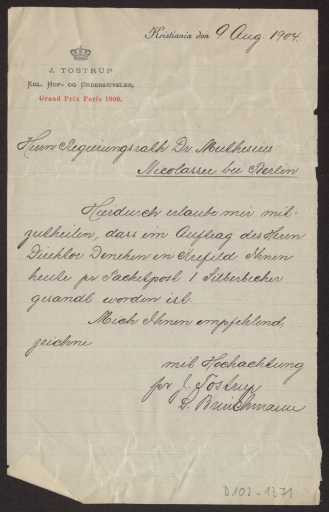 Kristiania den 9 Aug 1904.
J. TOSTRUP
KGL. HOF- OG ORDENSJUVELER.
Grand Prix Paris 1900.
Herrn Regierungsrath Dr. Muthesius
Nicolassee bei Berlin
Hierdurch erlaube mir mit-
zutheilen, dass im Auftrag des Herrn
Direktor Deneken in Crefeld Ihnen
heute pr Packetpost 1 Silberbecher
gesandt worden ist.
Mich Ihnen empfehlend,
zeichne
mit Hochachtung
for J. Tostrup
D. Brinchmann
D 102 - 1371